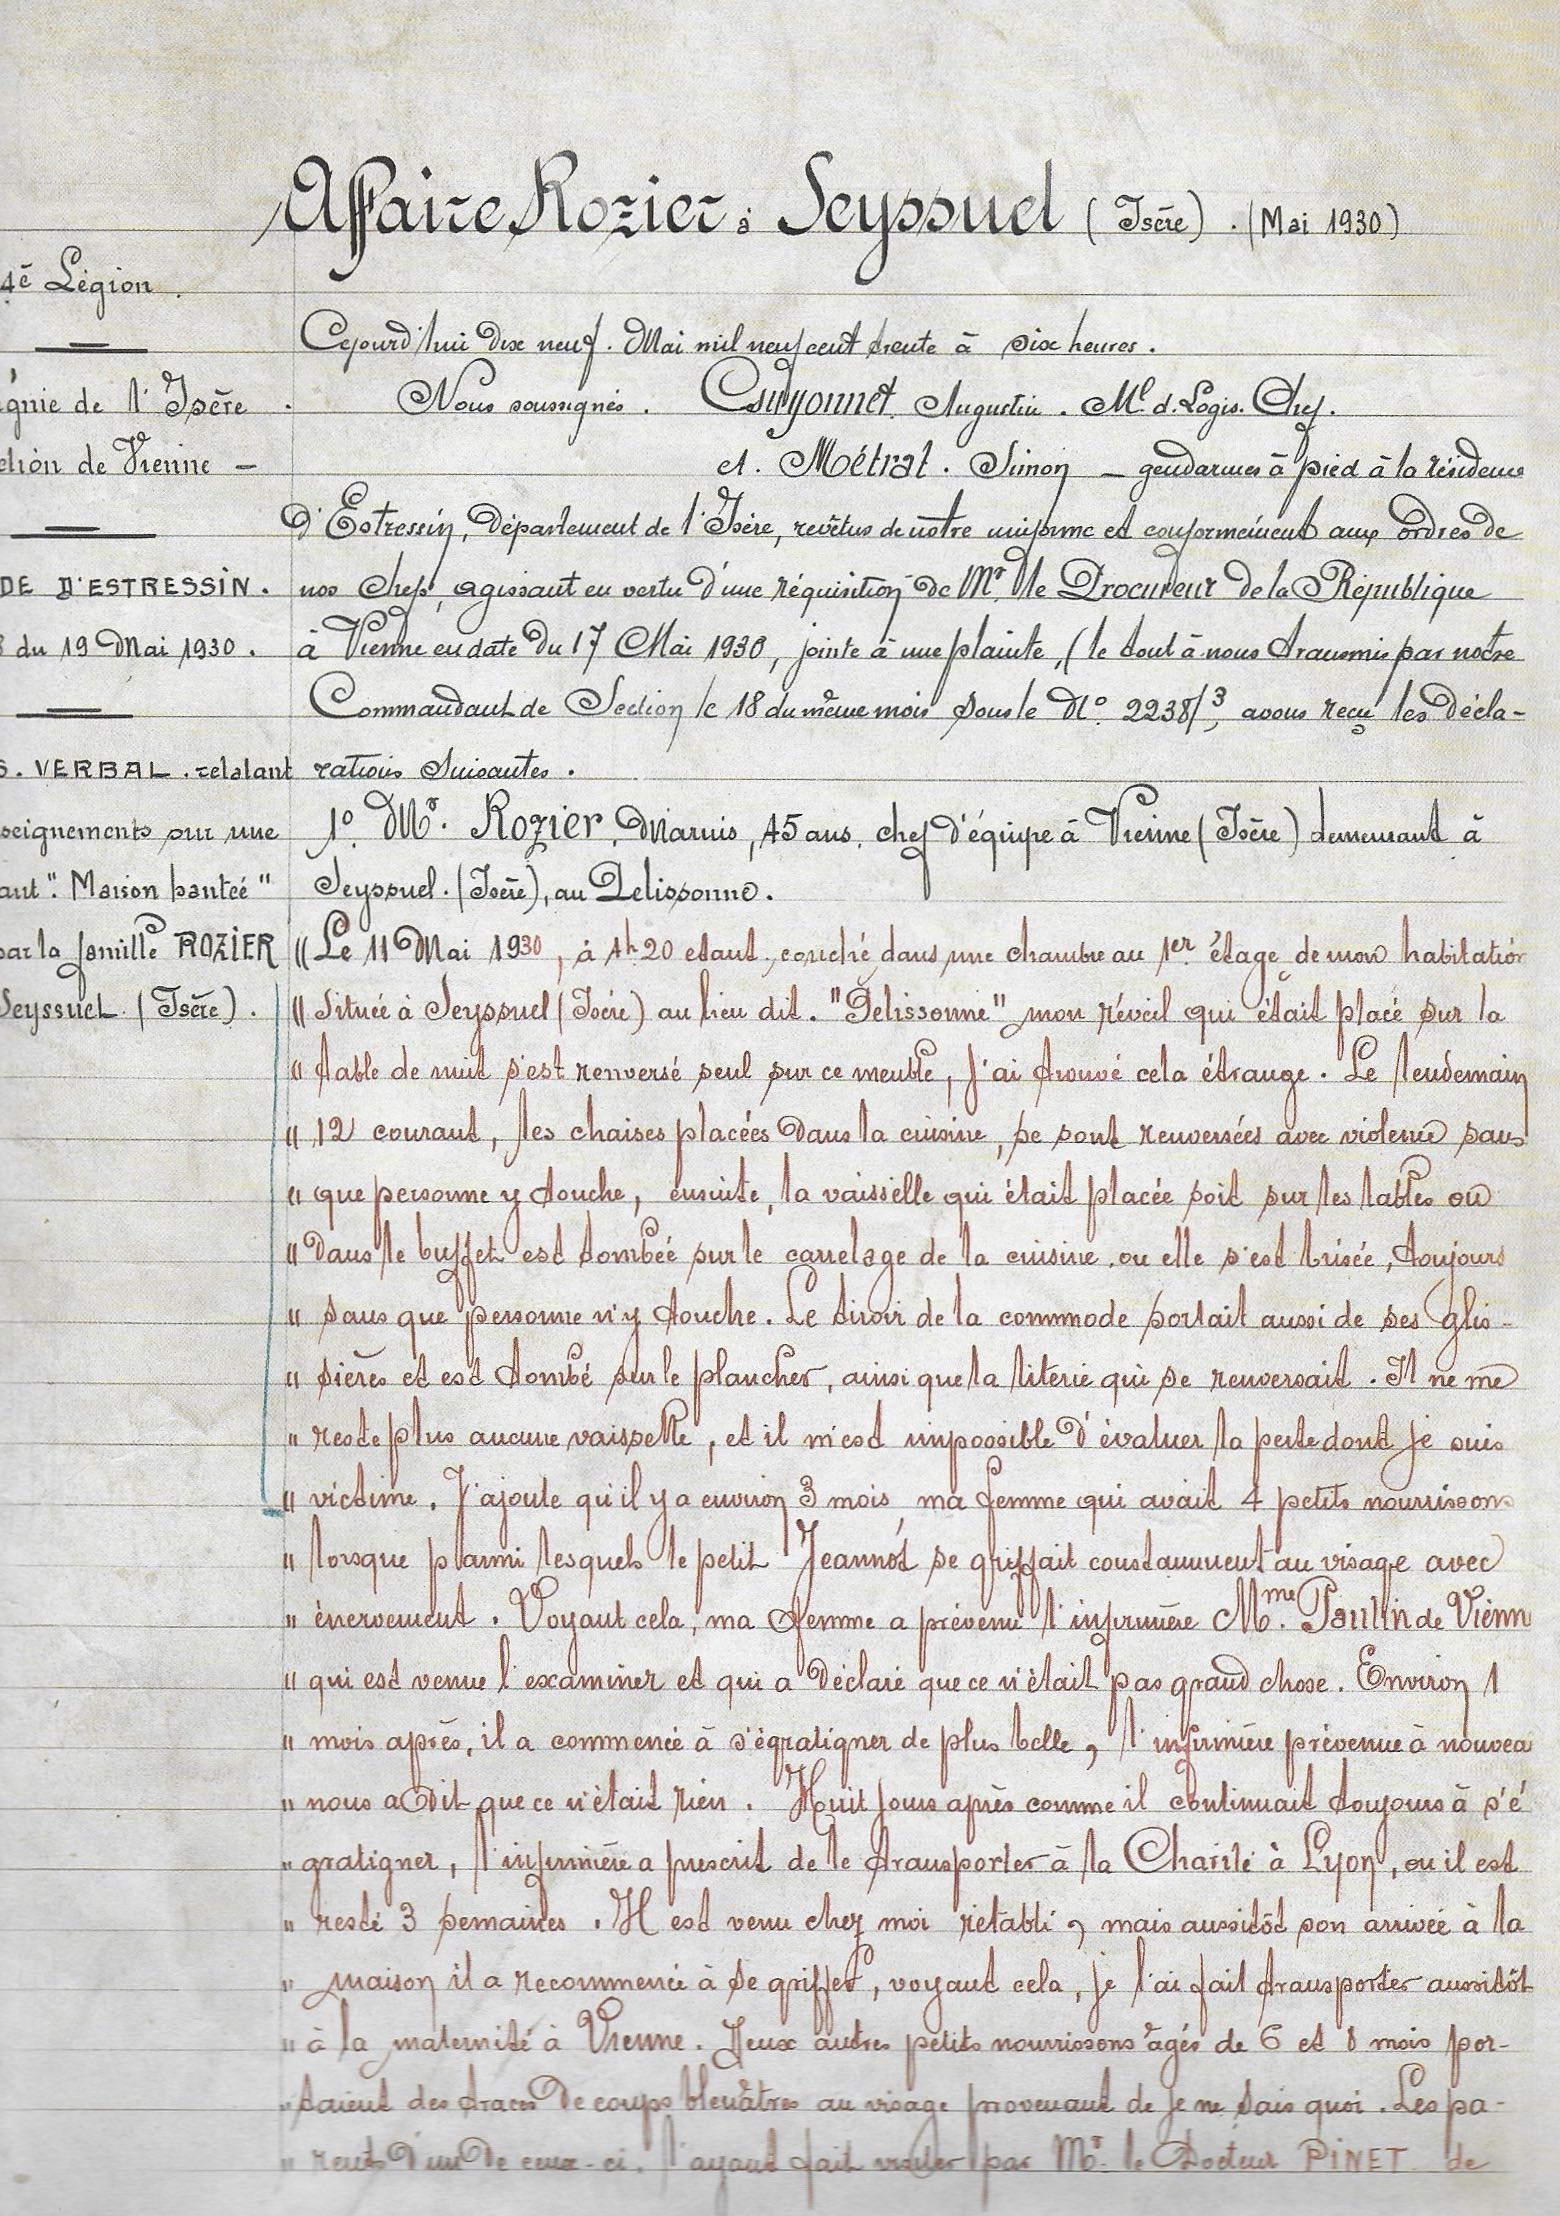 Affaire Rozier à Seyssuel (Isère). (Mai 1930)
4è Légion.
gnie de l'Isère.
ction de Vienne -
DE D'ESTRESSIN.
du 19 Mai 1930.
S. VERBAL. relatant
seignements sur une
ant ". Maison hantée"
par la famille ROZIER
Seyssuel. (Isère).
Cejourd'hui dix neuf. Mai mil neuf cent trente à six heures.
Nous soussignés. Guyonnet Augustin. Ml. d. Logis. Chef.
et. Métrat. Simon - gendarmes à pied à la résidence
D'Estressin, Département de l'Isère, revêtus de notre uniforme et conformément aux ordres de
nos chefs, agissant en vertu d'une réquisition de Mr. le Procureur de la République
à Vienne en date du 17 Mai 1930, jointe à une plainte, (le tout à nous transmis par notre
Commandant de Section le 18 du même mois sous le No. 2238/3, avons reçu les décla-
rations suivantes.
1o. Mr. Rozier, Marius, 45 ans, chef d'équipe à Vienne (Isère) demeurant à
Seyssuel. (Isère), au Pelissonne.
" Le 11 Mai 1930, à 4h 20 etant, couché, dans une chambre au 1er étage de mon habitation
" Située à Seyssuel (Isère) au lieu dit. "Pelissonne" mon réveil qui était placé sur la
" table de nuit s'est renversé seul sur ce meuble, j'ai trouvé cela étrange. Le lendemain
" 12 courant, les chaises placées dans la cuisine, se sont renversées avec violence sans
" que personne y touche, ensuite, la vaisselle qui était placée soit sur les tables ou
" Dans le buffet est tombée sur le carrelage de la cuisine, ou elle s'est brisée, toujours
" sans que personne n'y touche. Le tiroir de la commode sortait aussi de ses glis-
" sières et est tombé sur le plancher, ainsi que la literie qui se renversait. Il ne me
" reste plus aucune vaisselle, et il m'est impossible d'évaluer la perte dont je suis
" victime. J'ajoute qu'il y a environ 3 mois, ma femme qui avait 4 petits nourrissons
" lorsque parmi lesquels le petit Jeannot se griffait constamment au visage avec
" énervement. Voyant cela, ma femme a prévenu l'infirmière Mme. Paulin de Vienn
" qui est venue l'examiner et qui a déclaré que ce n'était pas grand chose. Environ 1
" mois après, il a commencé à s'égratigner de plus belle, l'infirmière prévenue à nouvea
" nous a dit que ce n'était rien. Huit jours après comme il continuait toujours à s'é
" gratigner, l'infirmière a prescrit de le transporter à la Charité à Lyon, ou il est
" resté 3 semaines. Il est venu chez moi rétabli, mais aussitôt son arrivée à la
" maison il a recommencé à se griffer, voyant cela, je l'ai fait transporter aussitôt
" à la maternité à Vienne. Deux autres petits nourrissons âgés de 6 et 8 mois por-
" taient des traces de coups bleuâtres au visage provenant de je ne sais quoi. Les pa-
" rents d'un de ceux-ci, l'ayant fait visiter par Mr. le Docteur PINET de